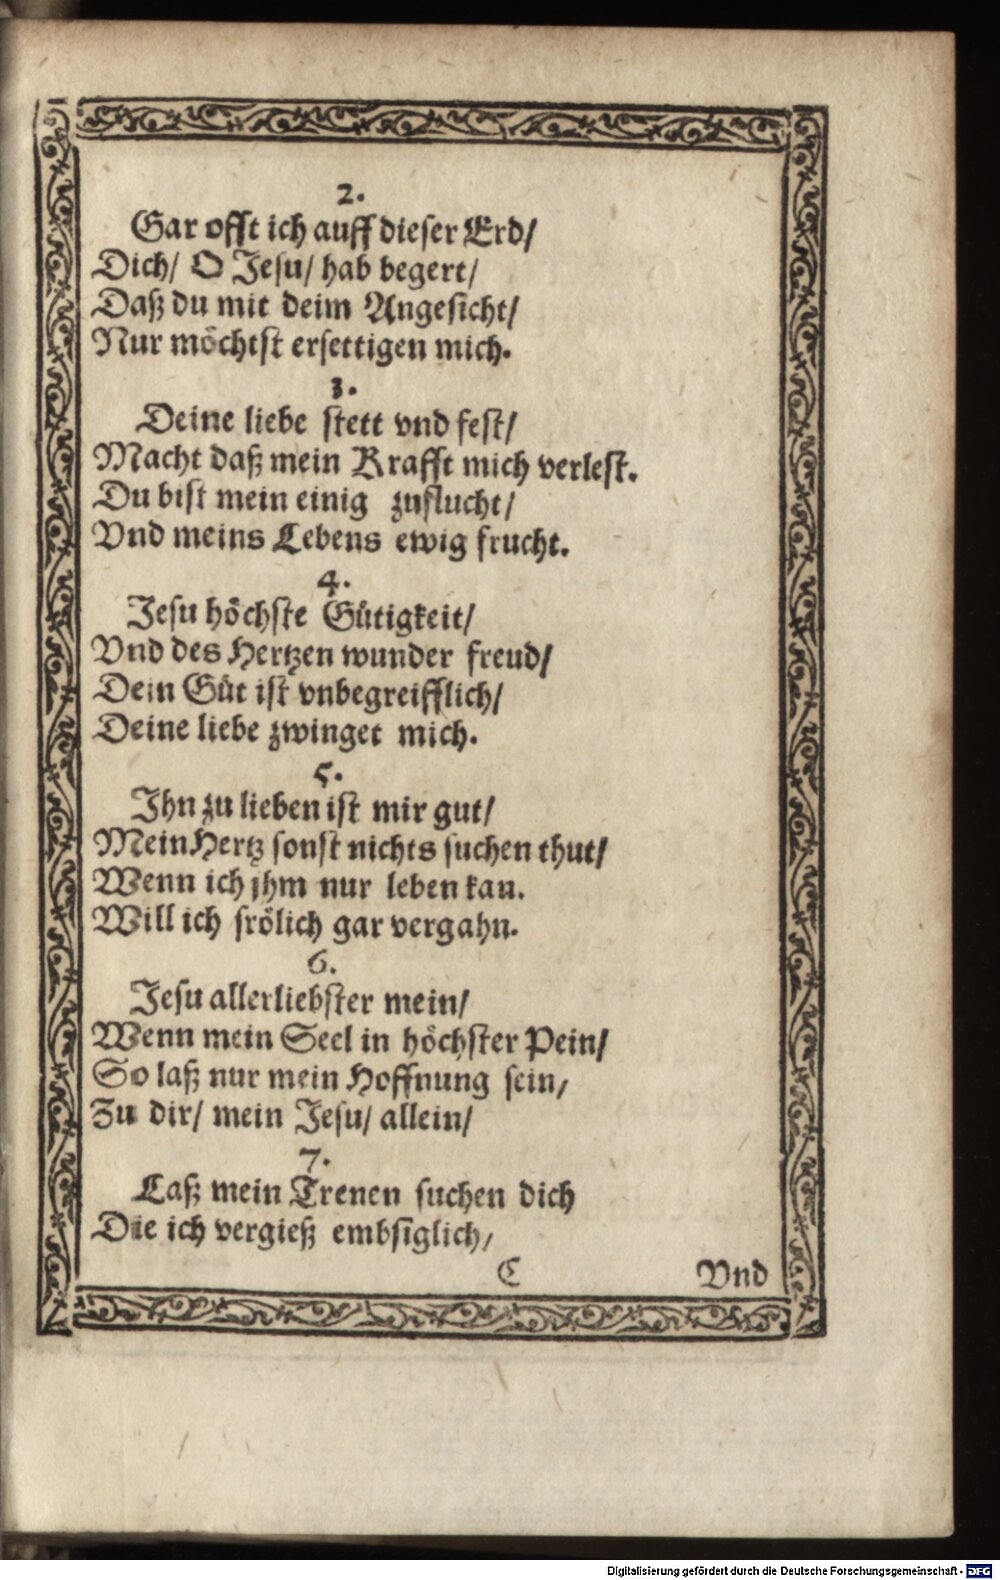 2.
Gar offt ich auff dieser Erd/
Dich/ O Jesu/ hab begert/
Daß du mit deim Angesicht/
Nur möchtst ersettigen mich.
3.
Deine liebe stett vnd fest/
Macht daß mein Krafft mich verlest.
Du bist mein einig zuflucht/
Vnd meins Lebens ewig frucht.
4.
Jesu höchste Gütigkeit/
Vnd des Hertzen wunder freud/
Dein Güt ist vnbegreifflich/
Deine liebe zwinget mich.
5.
Ihn zu lieben ist mir gut/
Mein Hertz sonst nichts suchen thut/
Wenn ich jhm nur leben kan.
Will ich frölich gar vergahn.
6.
Jesu allerliebster mein/
Wenn mein Seel in höchster Pein/
So laß nur mein Hoffnung sein/
Zu dir/ mein Jesu/ allein/
7.
Laß mein Trenen suchen dich
Die ich vergieß embsiglich/
C Vnd
Digitalisierung gefördert durch die Deutsche Forschungsgemeinschaft - DFG